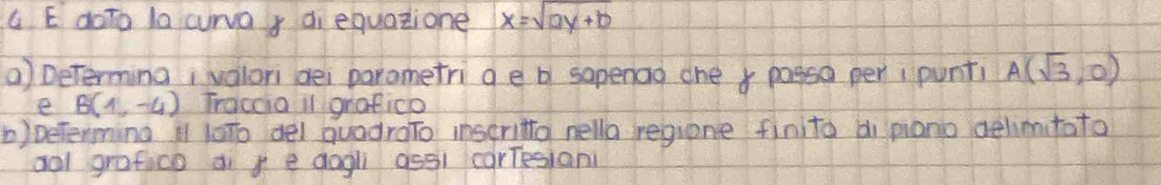 6 E dato la curva γ di equazione x=√ay+b
a) Determina i valori dei parametri a e b sapendo che γ passa per i punti A(√3,0)
e B(1,-4) Traccia il grafico
b) Determina il lato del quadrato inscritto nella regione finita di piano delimitata
dal grafico di γ e dagli assi cartesiani